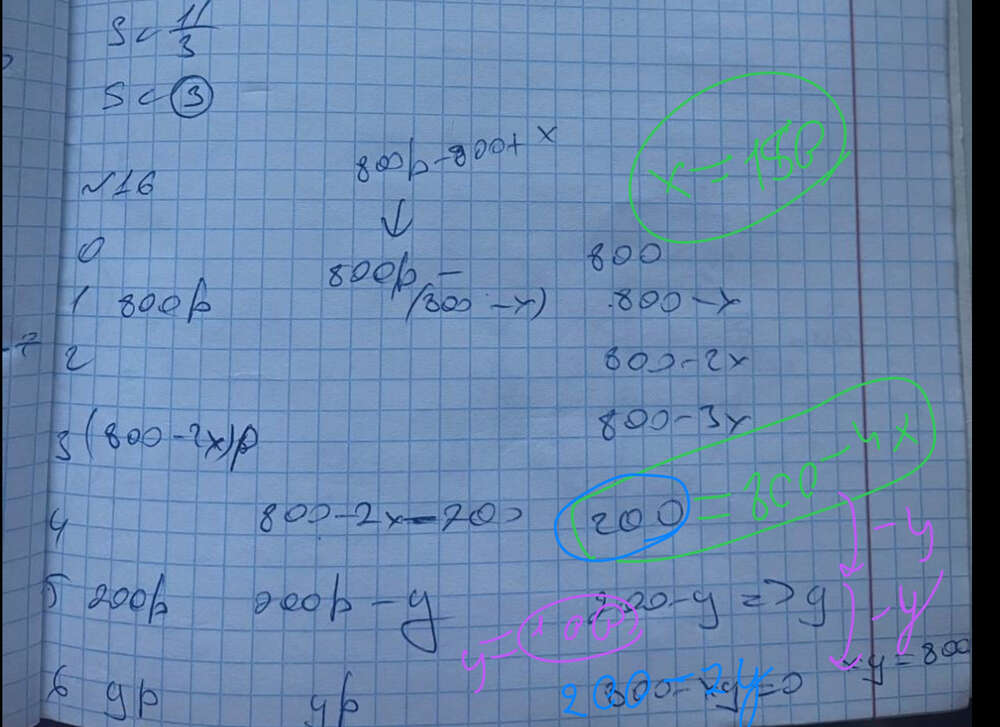 S < 11/3
S < 3
800p-800+x
x = 150
№16
0 800
800p -
1 800p (800 - x) 800-x
2 800-2x
3 (800-2x)p 800-3x
4 800-2x-200 200 = 800-4x
-y
5 200p 200p - y 200-y => y
-y
y=100
-y=800
6 yp yp 200-2y=0